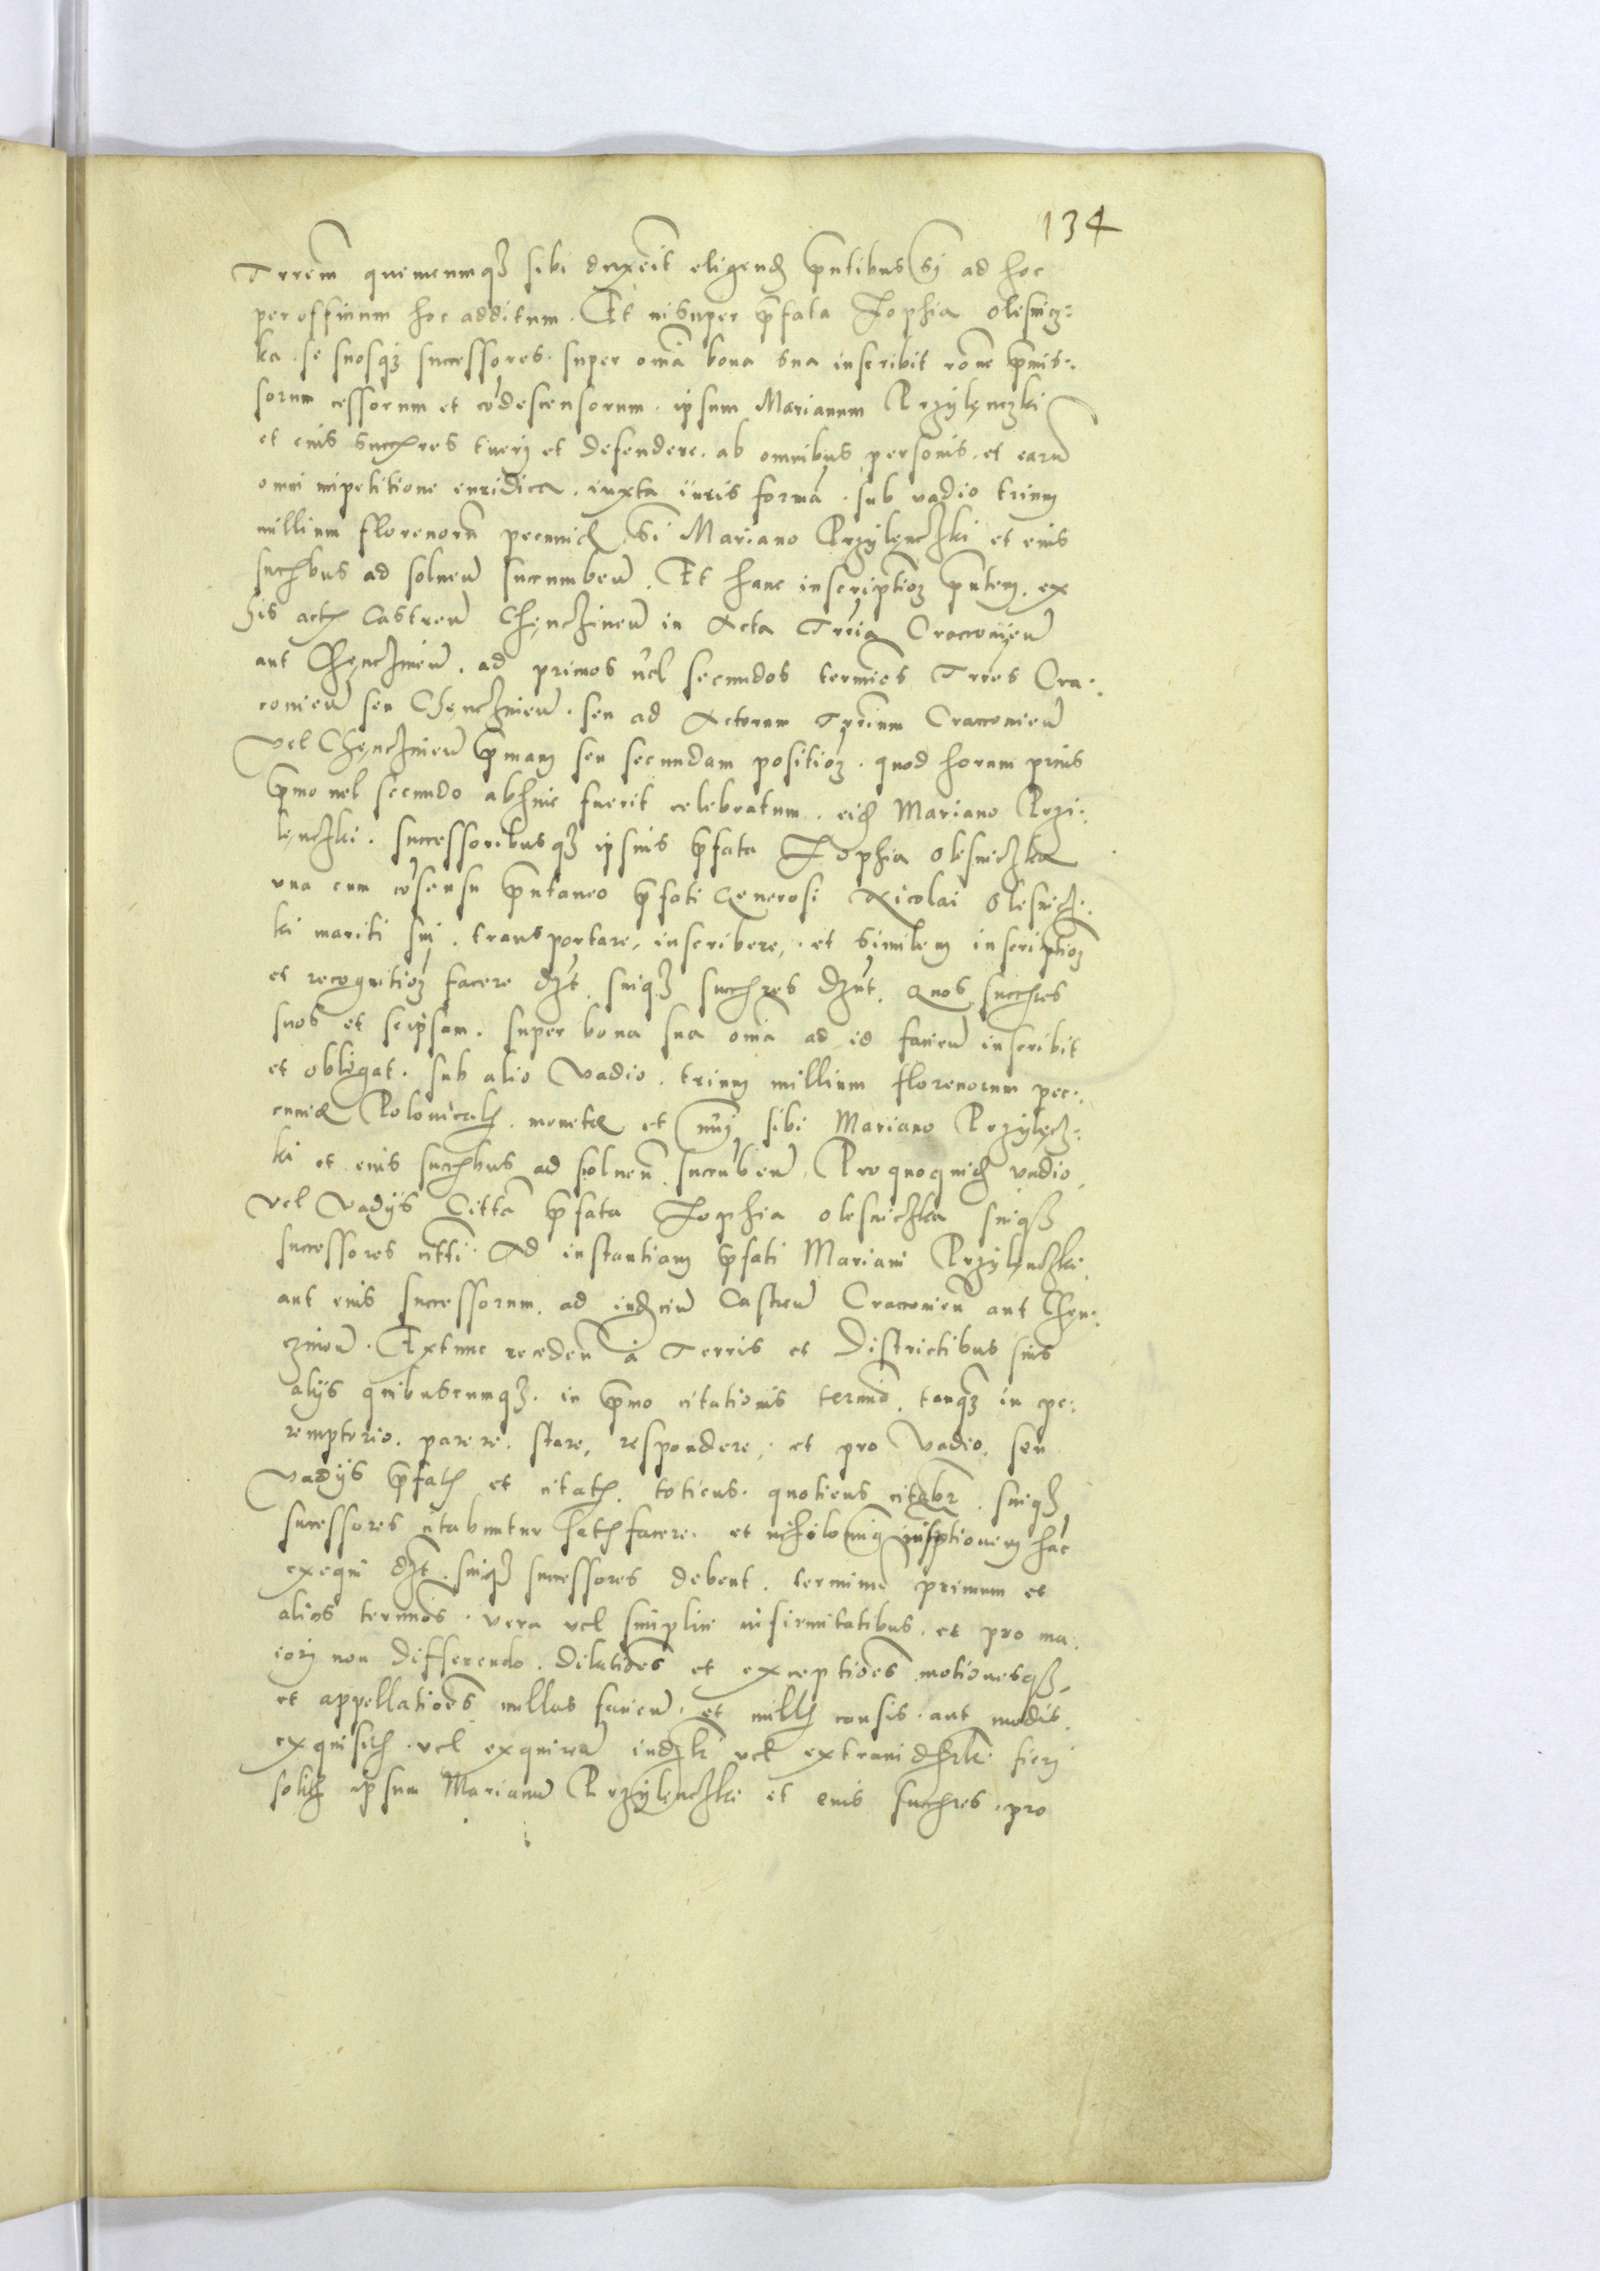 134
Trrem quemcumqz sibi duxerit eligend pntibus Sj ad hoc
per officium hoc additum. Et insuper pfata Zophia Olesnicz:
ka. se suosqz successores. super oma bona sua inscribit rone pmis:
sorum cessorum et codescensorum. ipsum Marianum Przylęnczki
et eius succres tueri et defendere. ab omnibus personis. et earu
omni impetitione iuridica. iuxta iuris forma. sub vadio trium
millium florenoru pecuniae Si Mariano Przylęnczki et eius
succbus ad soluen succumben. Et hanc inscriptioz pntem. ex
his actis Castren Chęnczinen in Acta Trria Cracouien
aut Chęnczinien. ad primos vel secundos termios Trres Cra:
couien seu Chęncznien. seu ad Actorum Trrium Cracouien
Vel Chęncznien pmam seu secundam positioz. quod horum prius
pmo uel secundo abhinc fuerit celebratum. eid Mariano Przi:
lęnczki. successoribusqz ipsius pfata Zophia Olesniczka
vna cum cosensu pntaneo pfati Generosi Nicolai Olesnicz:
ki mariti sui. transportare, inscribere, et similem inscriptioz
et recognitioz facere dzt. suiqz succres dznt. Quos succres
suos et seipsam. super bona sua oma ad id facien inscribit
et obligat. sub alio Vadio. trium millium florenorum pec:
cuniae Polonicals. monetae et nuj sibi Mariano Przylęcz:
ki et eius succbus ad soluen succuben. Pro quoquid vadio.
Vel Vadijs Citta pfata Zophia Olesniczka suiqz
successores citti. Ad instantiam pfati Mariani Przylęnczki.
aut eius successorum. ad iudiciu Castren Cracouien aut Chęn:
cznien. Extunc receden a Terris et Districtibus suis
alijs quibuscumqz. in pmo citationis termio. tanqz in pe:
remptorio. parere. stare, respondere, et pro Vadio. seu
Vadijs pfatis et citatis. totiens. quotiens citabr. suiqz
sucessores citabuntur satisfacere. et nihilominus inscptionem hac
exequi dzt. suiqz successores debent. terminu primum et
alios termios. vera vel simplici infirmitatibus. et pro ma:
iorj non differendo. Dilatioes et exceptioes motionesqz,
et appellatioes nullas facien. et nullis causis. aut modis.
exquisitis. vel exquiren iudzlr vel extraiudzlr fieri
solitis ipsum Marianu Przylęnczki et eius succres. pro